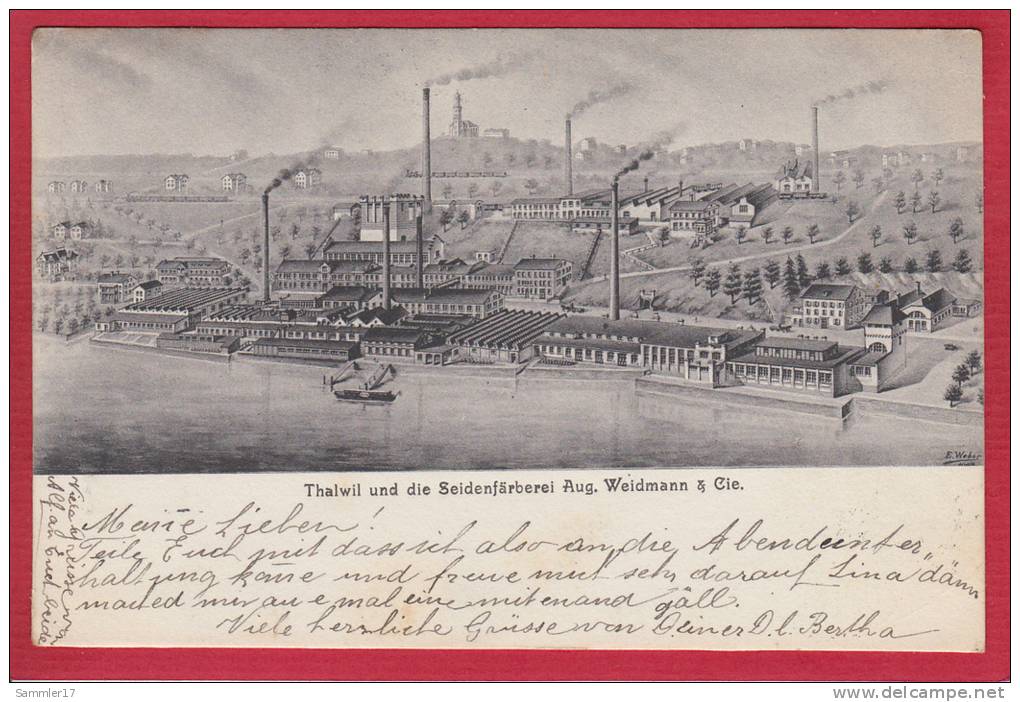 E. Weber
Thalwil und die Seidenfärberei Aug. Weidmann & Cie.
Meine Lieben!
Teile Euch mit dass ich also an die Abendunter„
haltung käne und freue mich sehr darauf Lina dänn
mached mir au e mal eine mitenand gäll.
Viele herzliche Grüsse von Deiner D. l. Bertha
Viele Grüsse von
Alf an Euch beide
Sammler17
www.delcampe.net